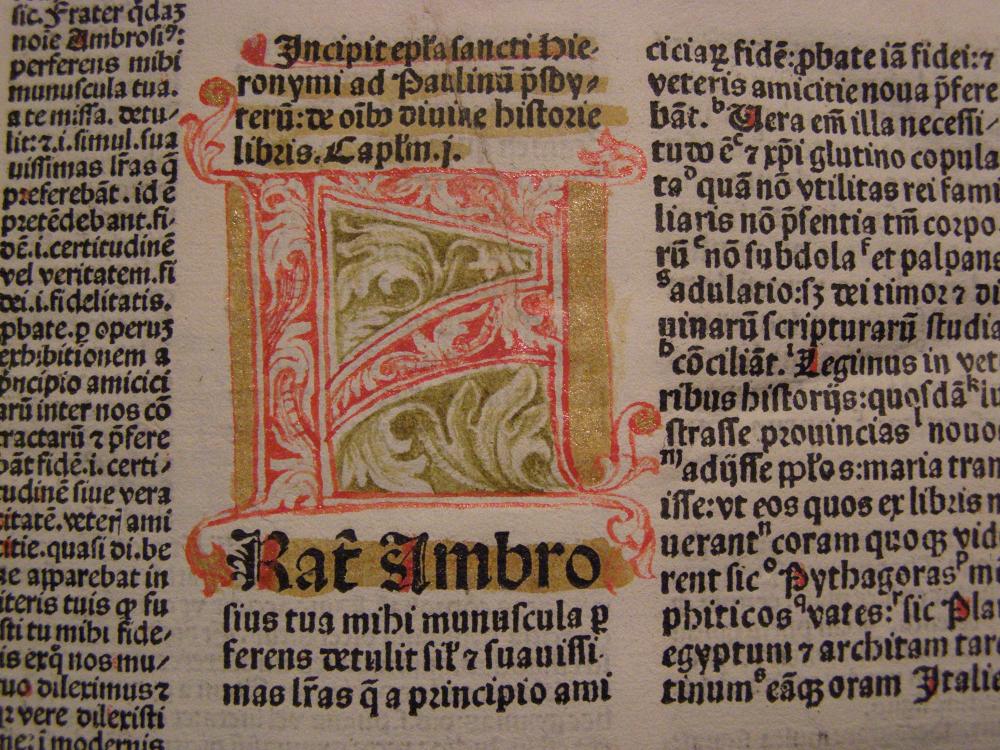 sic. Frater q̄daʒ
noīe Ambrosiꝰ:
perferens mihi
munuscula tua.
a te missa. detu⸗
lit: ⁊.i. simul. sua
uissimas lr̄as q̄
preferebāt. id ē
pretēdebant. fi⸗
dē. i. certitudinē
vel veritatem. fi
dei. i. fidelitatis.
pbate. ꝑ operuʒ
exhibitionem a
principio amicici
arū inter nos cō
tractarū ⁊ p̄fere
bāt fidē. i. certi⸗
tudinē siue vera
citatē. veterꝭ ami
citie. quasi di. be
ne apparebat in
literis tuis ꝙ fu
isti tu mihi fide⸗
is exq̄ nos mu⸗
tuo dileximus ⁊
vere dilexisti
ne: i modernis
Incipit epl̄a sancti Hie⸗
ronymi ad Paulinū p̄sby⸗
terū: de oībꝰ diuine historie
libris. Capl̄m. j.
F
Rat̄ Ambro
sius tua mihi munuscula ꝑ
ferens detulit sil̄ ⁊ suauissi⸗
mas lr̄as q̄ a principio ami
ciciaꝝ fidē: ꝓbate iā fidei: ⁊
veteris amicitie noua p̄fere
bāt. ᵇ Uera em̄ illa necessi⸗
tudo ē ᶜ ⁊ xp̄i glutino copula
ta ᵈ quā nō vtilitas rei fami
liaris nō p̄sentia tm̄ corpo
rū ᵉ nō subdola ᶠ et palpans
ᵍ adulatio: sʒ dei timor ⁊ di
uinarū scripturarū studia
ʰ cōciliāt. ⁱ Legimus in vet
ribus historijs: quosdā ᵏ lu
strasse prouincias ˡ nouo
ᵐ adijsse ppl̄os: maria tran
isse: vt eos quos ex libris n
uerant ⁿ coram quoqꝫ vid
rent sic ᵒ Pythagoras ᵖ mē
phiticos ᑫ vates: ʳ sic Pla
egyptum ⁊ architam tare
tinum ˢ eāqꝫ oram Italie